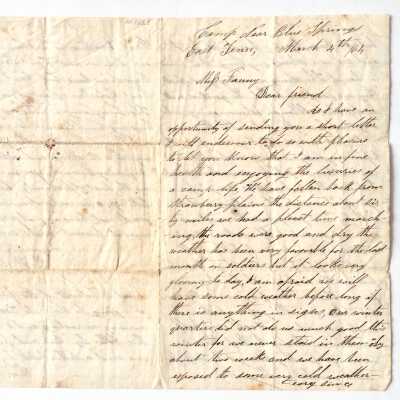 Camp near Blue Springs
East Tenn, March 4th /64
Miss Fanny
Dear friend
As I have an
opportunity of sending you a short letter
I will endeavour to do so with pleasure
to let you know that I am in fine
health and enjoying the luxuries of
a camp life We have fallen back from
Strawberry plains the distance about six
ty miles we had a plesant time march
ing, the roads were good and dry the
weather has been very favorable for the last
month on soldiers but it looks very
gloomy to day, I am afraid we will
have some cold weather before long if
there is anything in signs, Our winter
quarters did not do us much good this
winter for we never staid in them only
about two weeks and we have been
exposed to some very cold weather
ever since